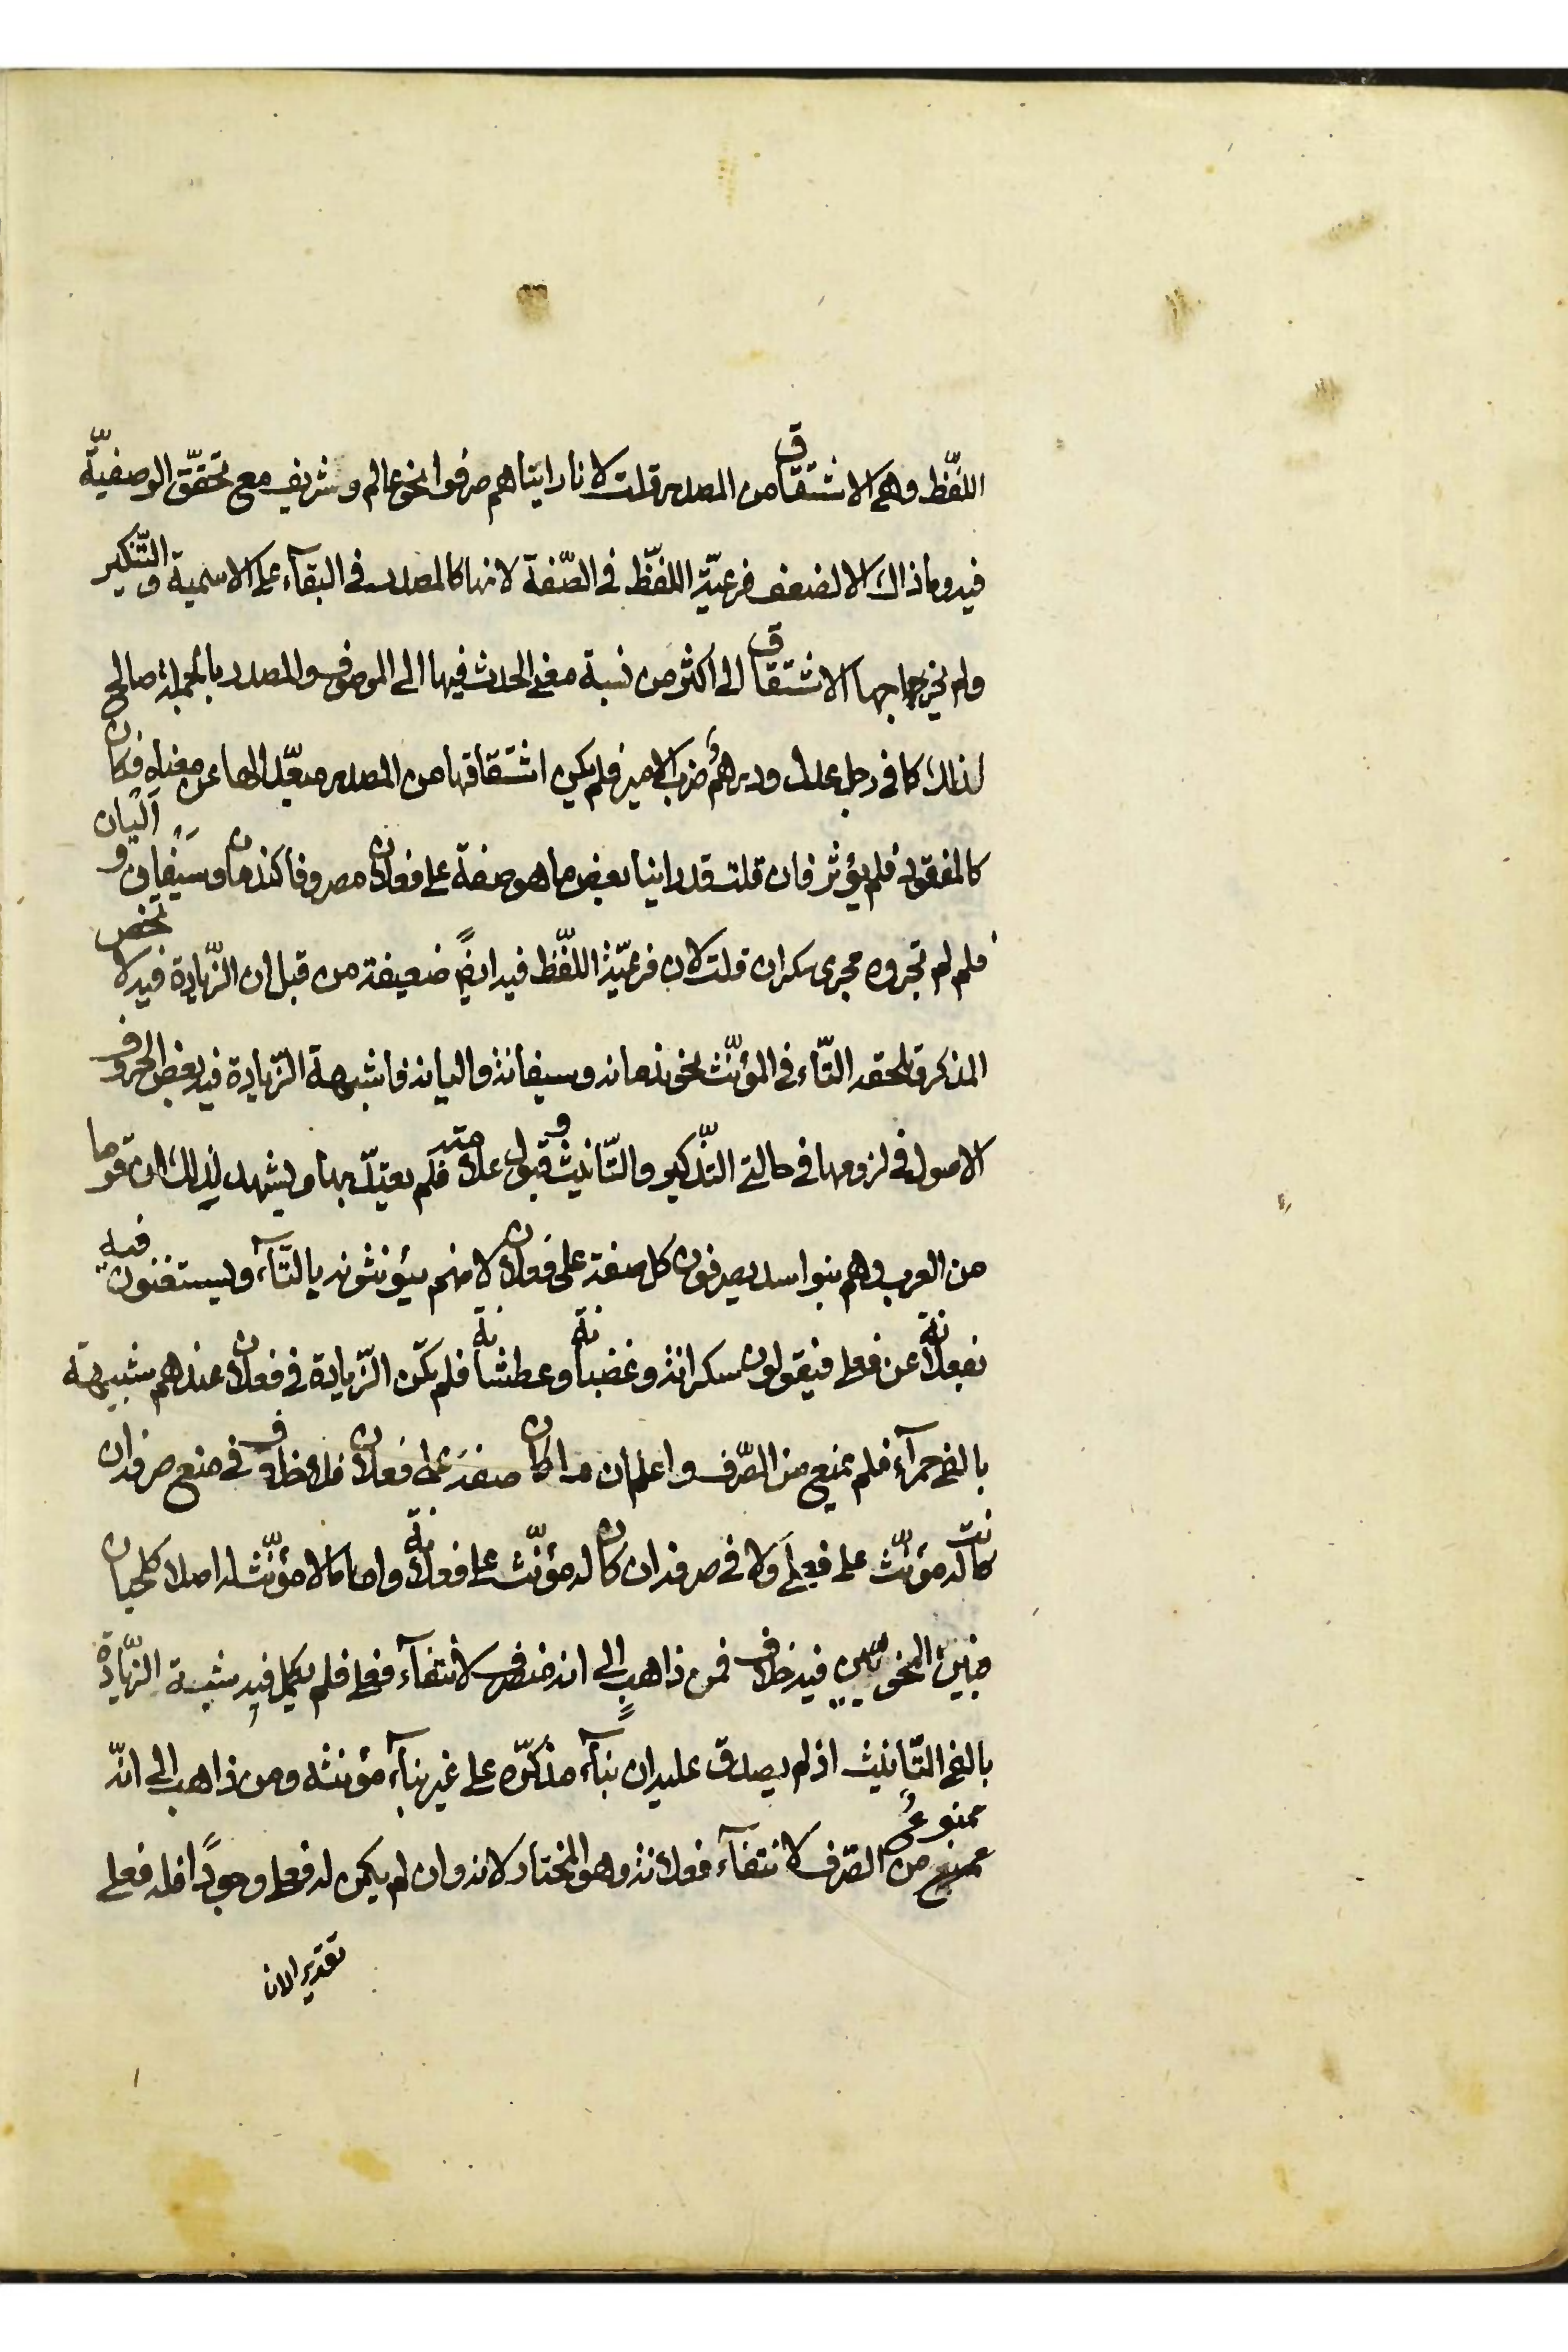 اللّفظ وهي الاشتقاق من المصدر قلت لانا رايناهم صرفوا نحو عالم وشريف مع تحقّق الوصفيّة
فيه وما ذاك الا لضعف فرعيّة اللفّظ في الصّفة لانها كالمصدر في البقآء على الاسمية والتّنكير
ولم يخرجها الاشتقاق الى اكثر من نسبة معنى الحدث فيها الى الموصوف والمصدر بالجملة صالح
لذلك كما في رجل عدل ودرهمُ ضرب الامير فلم يكن اشتقاقها من المصدر مبعّدا لها عن معناه فكان
كالمفقود فلم يؤثر فان قلت قد راينا بعض ما هو صفة على فعلان مصروفا كندمان وسَيْفان واَليان
فلم لم تجروه مجرى سكران قلت لان فرعيّة اللّفظ فيه ايضًا ضعيفة من قبل ان الزّيادة فيه لا تخص
المذكر وتلحقه التّاء في المؤنّث نحو ندمانه وسيفانة واليانة فاشبهة الزّيادة فيه بعض الحروف
الاصول في لزومها في حالتي التذّكير والتّانيث وقبول علامته فلم يعتدّ بها ويشهد لذلك ان قوما
من العرب وهم بنوا اسد يصرفون كل صفة على فعلان لانهم يؤنثونه بالتّآء ويستغنون فيه
بفعلانة عن فعلى فيقولون سكرانة وغضبانة وعطشانة فلم تكن الزّيادة في فعلان عندهم شبيهة
بالفي حمرآء فلم تمنع من الصّرف واعلم ان ما كان صفة على فعلان فلا خلاف في منع صرفه ان
كانت له مؤنّث على فعلى ولا في صرفه ان كان له مؤنّث على فعلانة واما ما لا مؤنّث له اصلا كلحيان
فبين النحويّين فيه خلاف فمن ذاهبٍ الى انه منصرف لانتفآء فعلى فلم يكمل فيه شبه الزّيادة
بالفي التّانيث اذ لم يصدق عليه ان بنآء مذكّره على غير بنآء مؤنثه ومن ذاهب الى انّه
ممنوعٌ من الصّرف لانتفآء فعلانة وهو المختار لانه وان لم يكن له فعلى وجودًا فله فعلى
تقديرا لان